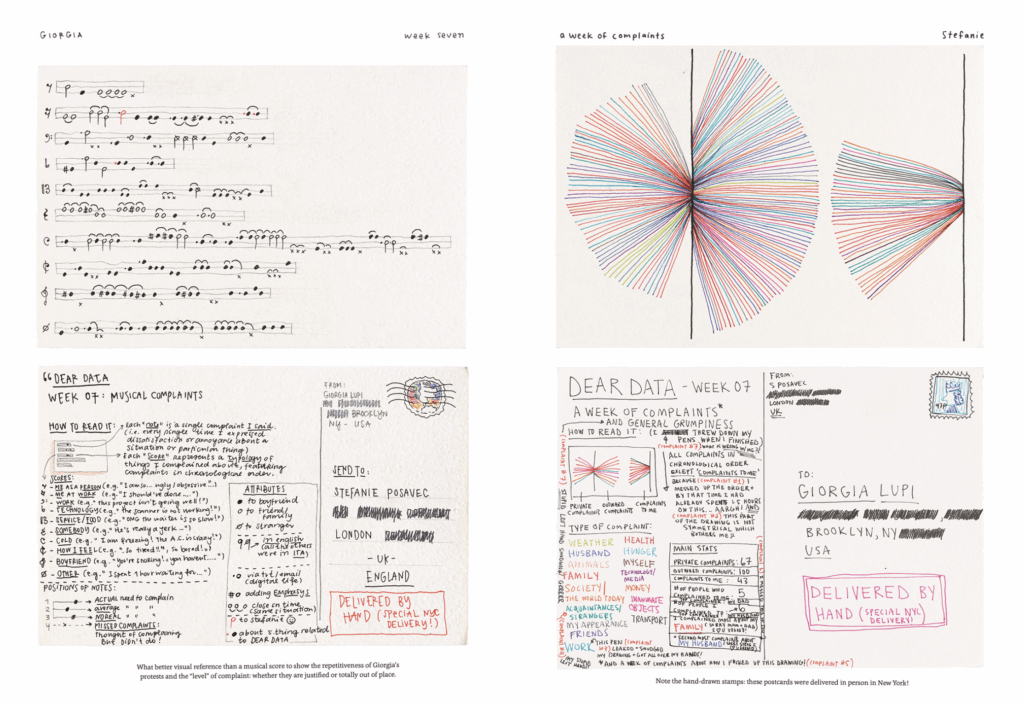 GIORGIA
WEEK SEVEN
a week of complaints
Stefanie
DEAR DATA
WEEK 07: MUSICAL COMPLAINTS
HOW TO READ IT:
Each "note" is a single complaint I said
(i.e. every single time I expressed
dissatisfaction or annoyance about a
situation or particular thing)
Each "score" represents a typology of
things I complained about, featuring
complaints in chronological order.
SCORES:
ME AS A PERSON (e.g. "I am so... ugly/
ME AT WORK (e.g. "I should've done...")
WORK (e.g. "this project isn't going well!")
TECHNOLOGY (e.g. "the scanner is not working!")
SERVICE/FOOD (e.g. "OMG the waiter is so slow!")
SOMEBODY (e.g. "He's really a jerk...")
COLD (e.g. "I am freezing! The A.C. is crazy!")
HOW I FEEL (e.g. "... so tired!!, so bored!")
BOYFRIEND (e.g. "you're snoring! you haven't....")
OTHER (e.g. "I spent 1 hour waiting for...")
POSITIONS OF NOTES:
1 ACTUAL need to complain
2 average " "
3 NORMAL " "
4 MISSED COMPLAINTS:
thought of complaining
but didn't do!
ATTRIBUTES
to boyfriend
to friend/
family
to stranger
in english
(all the others
were in ITA)
via txt/email
(digital life)
adding EMPHASYS
close in time
(same situation)
to stefanie
about s.thing related
to DEAR DATA
FROM:
GIORGIA LUPI
BROOKLYN
NY - USA
SEND TO:
STEFANIE POSAVEC
LONDON
- UK -
ENGLAND
DELIVERED BY
HAND (SPECIAL NYC
DELIVERY!)
What better visual reference than a musical score to show the repetitiveness of Giorgia's
protests and the "level" of complaint: whether they are justified or totally out of place.
DEAR DATA - WEEK 07
A WEEK OF COMPLAINTS*
AND GENERAL GRUMPINESS
HOW TO READ IT: (I THREW DOWN MY
4 PENS WHEN I FINISHED)
(COMPLAINT #7) WHAT IS WRONG W/ ME?!
ALL COMPLAINTS IN
CHRONOLOGICAL ORDER
EXCEPT 'COMPLAINTS TO ME'
BECAUSE (COMPLAINT #1) I
MESSED UP THE ORDER +
BY THAT TIME I HAD
ALREADY SPENT 1.5 HOURS
ON THIS... AARGH! AND
(COMPLAINT #2) THIS PART
OF THE DRAWING IS NOT
SYMMETRICAL WHICH
BOTHERS ME
PRIVATE COMPLAINTS
OUTWARD COMPLAINTS
COMPLAINTS TO ME
TYPE OF COMPLAINT:
WEATHER
HUSBAND
ANIMALS
FAMILY
SOCIETY/
THE WORLD TODAY
ACQUAINTANCES/
STRANGERS
MY APPEARANCE
FRIENDS
WORK
HEALTH
HUNGER
MYSELF
TECHNOLOGY/
MEDIA
MONEY
INANIMATE
OBJECTS
TRANSPORT
MAIN STATS
PRIVATE COMPLAINTS: 67
OUTWARD COMPLAINTS: 100
COMPLAINTS TO ME: 43
# OF PEOPLE WHO
COMPLAINED TO ME: 5
# OF PEOPLE I
COMPLAINED TO
I COMPLAINED MOST ABOUT MY
FAMILY
(SORRY MOM + DAD,
LOVE YOU!)
SECOND MOST COMPLAINED ABOUT
MY HUSBAND
* THIS PEN (COMPLAINT
#3) LEAKED + SMUDGED
MY DRAWING + GOT ALL OVER MY HANDS!
* AND A WEEK OF COMPLAINTS ABOUT HOW I F*CKED UP THIS DRAWING! (COMPLAINT #5)
FROM:
S POSAVEC
LONDON
UK
TO:
GIORGIA LUPI
BROOKLYN, NY
USA
DELIVERED BY
HAND (SPECIAL NYC
DELIVERY!)
Note the hand-drawn stamps: these postcards were delivered in person in New York!